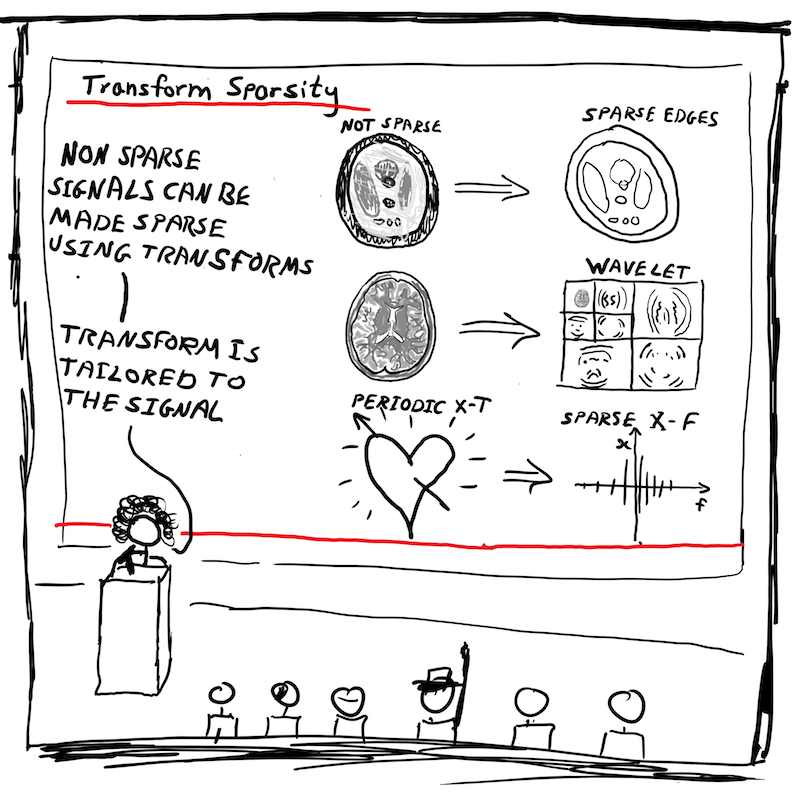 Transform Sparsity
NON SPARSE
SIGNALS CAN BE
MADE SPARSE
USING TRANSFORMS
TRANSFORM IS
TAILORED TO
THE SIGNAL
NOT SPARSE
SPARSE EDGES
WAVELET
PERIODIC X-T
SPARSE X-F
x
f